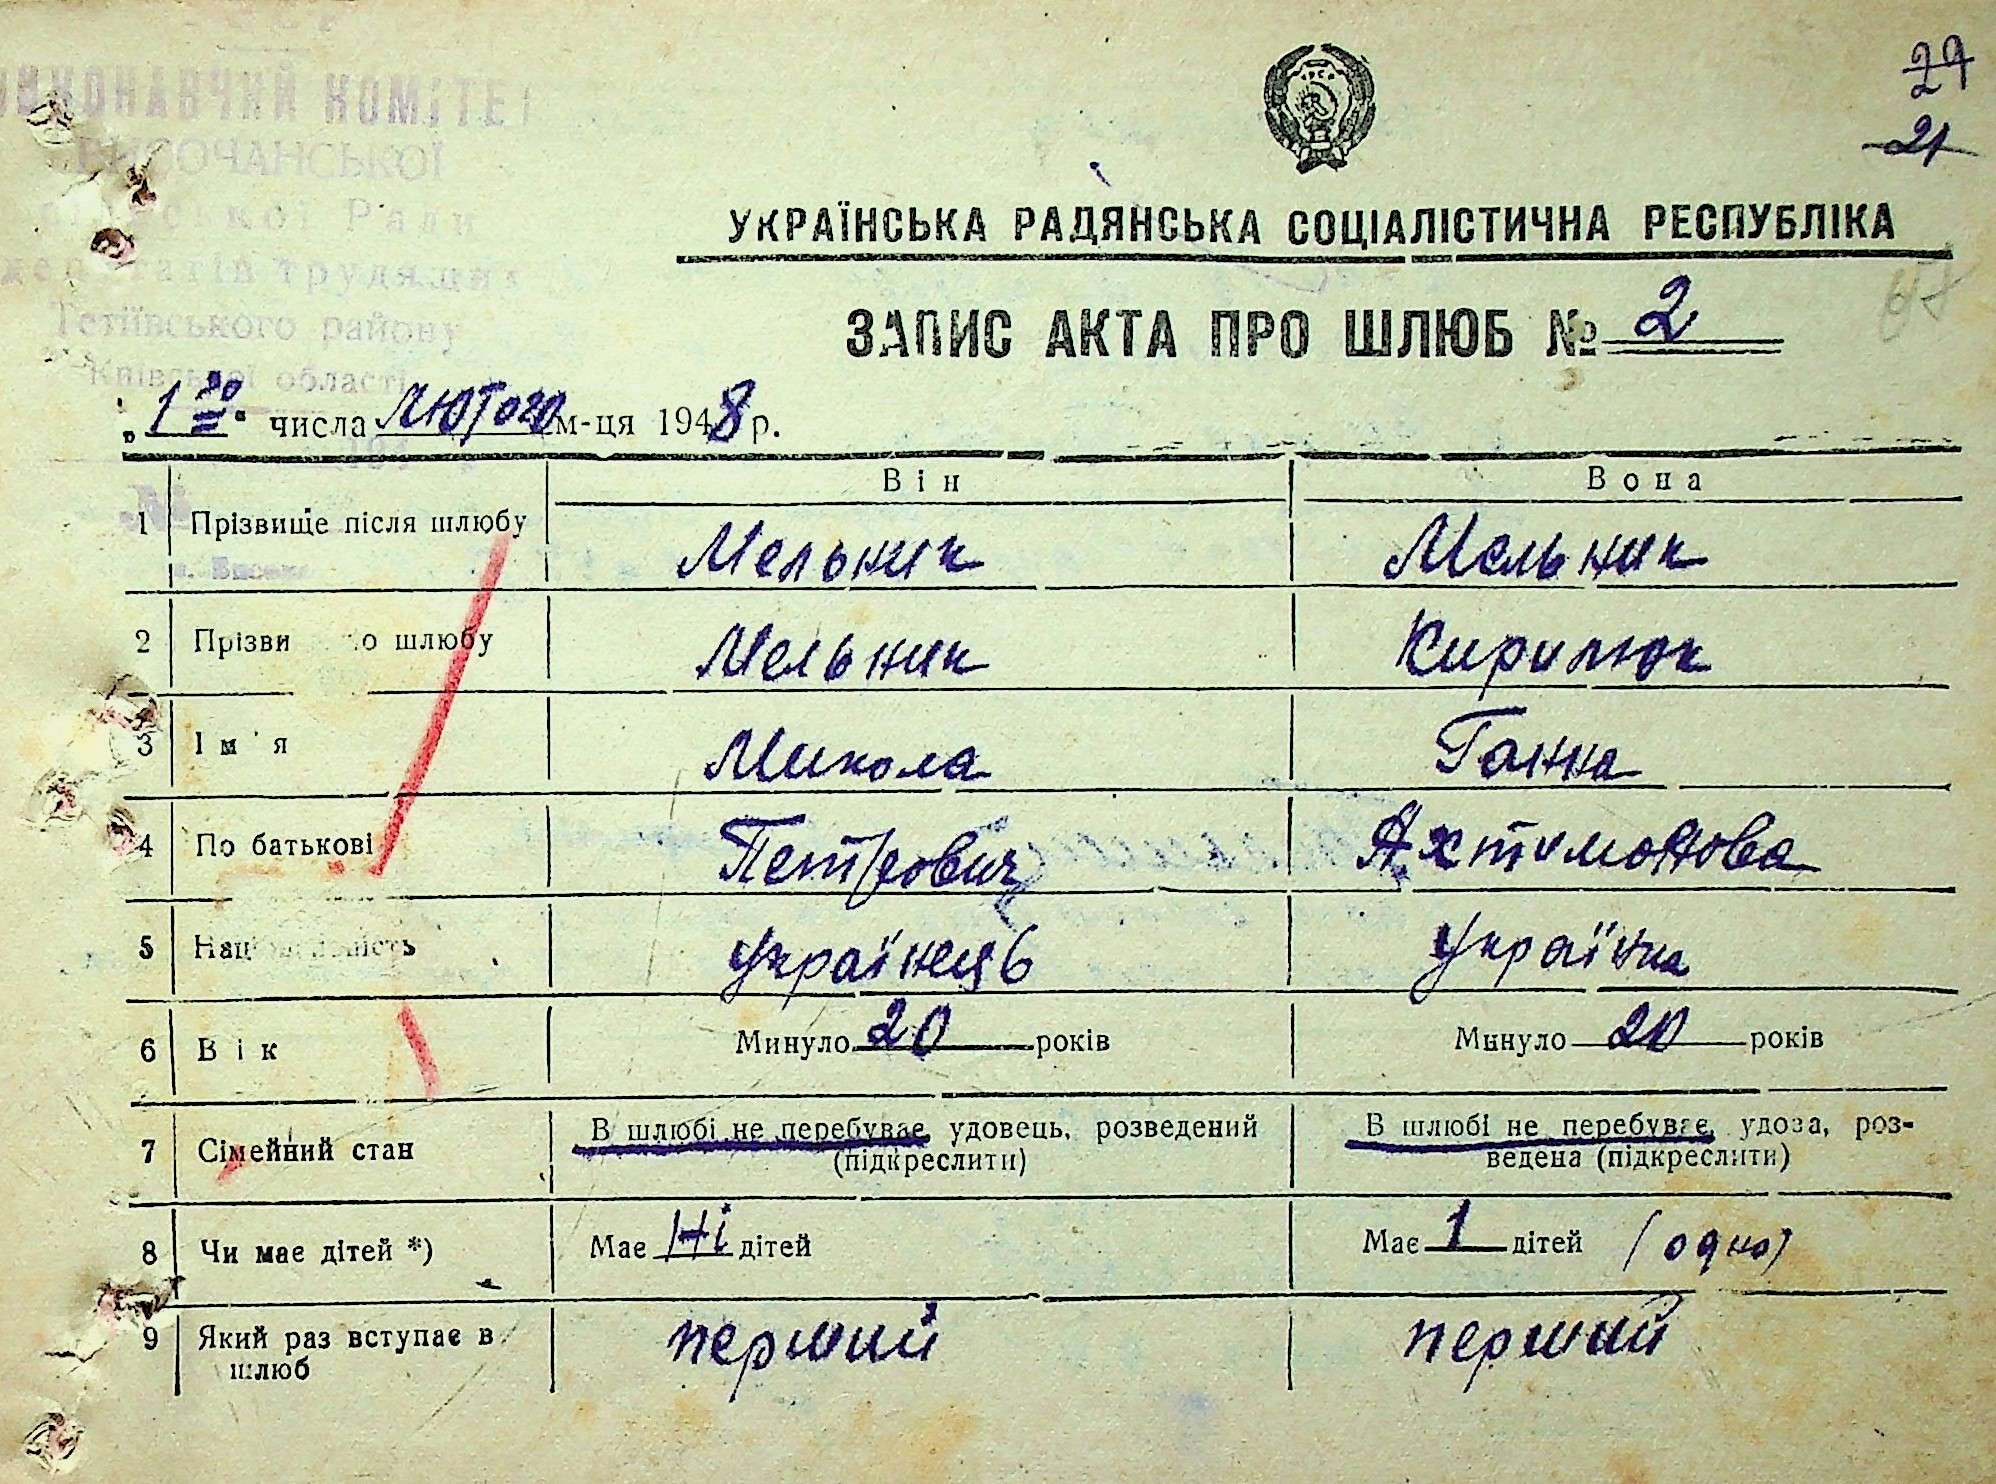 ВИКОНАВЧИЙ КОМІТЕТ
ВИСОЧАНСЬКОЇ
сільської Ради
депутатів трудящих
Тетіївського району
Київської області
29
21
УКРАЇНСЬКА РАДЯНСЬКА СОЦІАЛІСТИЧНА РЕСПУБЛІКА
ЗАПИС АКТА ПРО ШЛЮБ № 2
„1го“ числа Лютого м-ця 1948 р.
Він Вона
1 Прізвище після шлюбу Мельник Мельник
2 Прізви о шлюбу Мельник Кирилюк
3 Ім'я Микола Ганна
4 По батькові Петрович Ахтимонова
5 Національність Українець Українка
6 Вік Минуло 20 років Минуло 20 років
7 Сімейний стан В шлюбі не перебуває, удовець, розведений (підкреслити) В шлюбі не перебуває, удова, роз-ведена (підкреслити)
8 Чи має дітей *) Має Ні дітей Має 1 дітей (одно)
9 Який раз вступає в шлюб перший перший